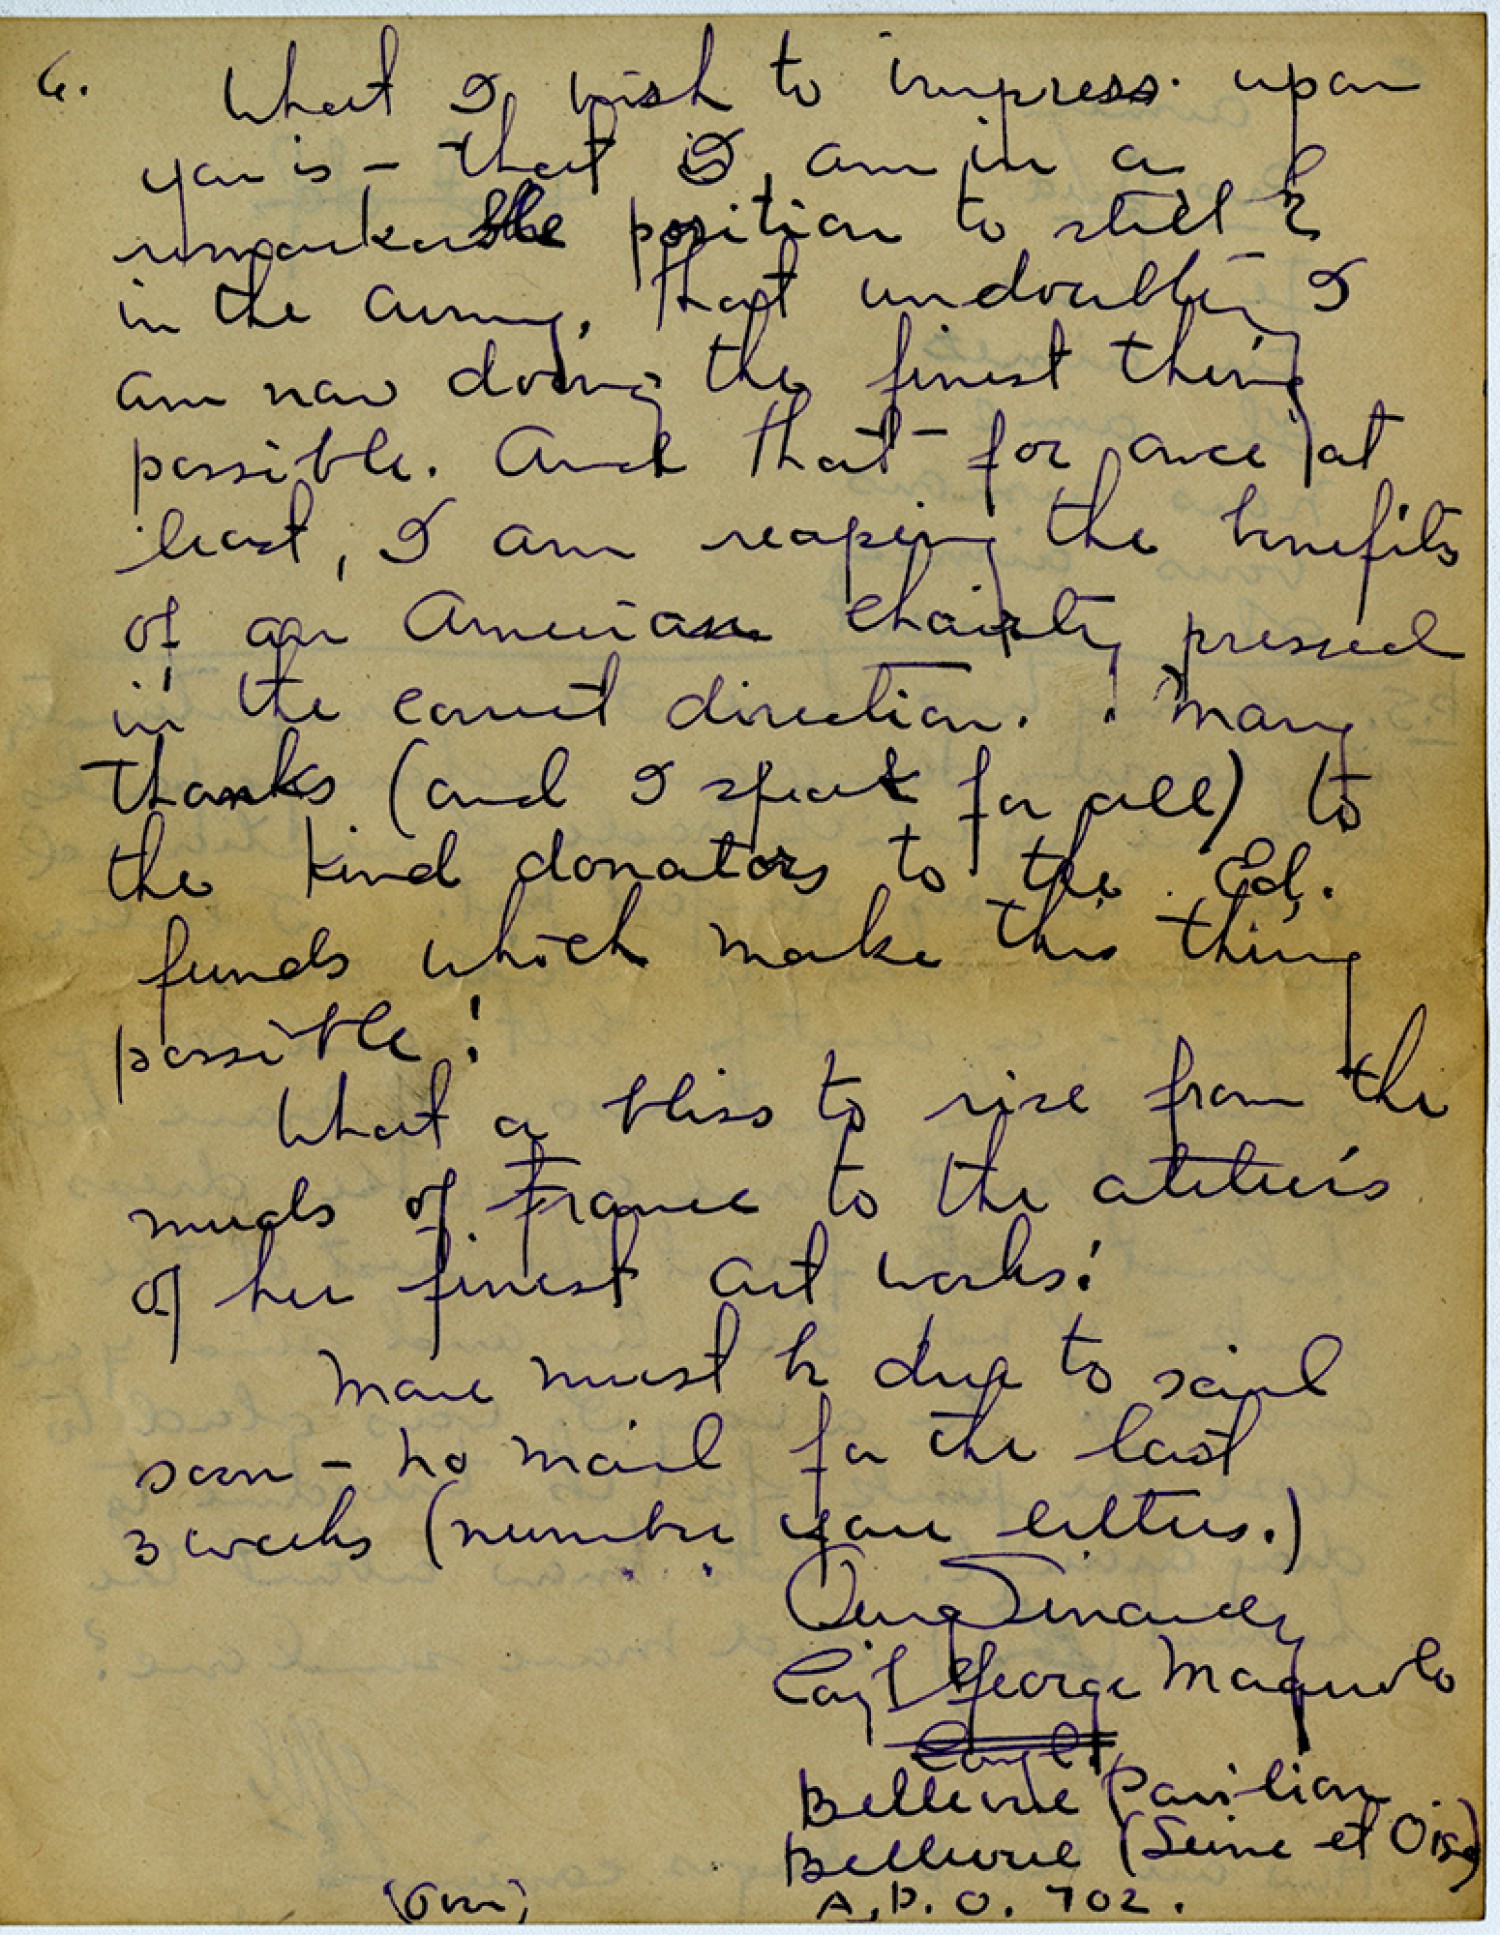 6. What I wish to impress upon
you is - that I am in a
remarkable position to still be
in the army, that undoubtly I
am now doing the finest thing
possible. And that - for once at
least, I am reaping the benefits
of an American chairty pressed
in the correct direction. Many
thanks (and I speak for all) to
the kind donators to the Ed.
funds which make this thing
possible!
What a bliss to rise from the
muds of France to the ateliers
of her finest art works!
More must be due to sail
soon - no mail for the last
3 weeks (number your letters.)
George Magnolo
Bellevue Pavilion
Bellevue (Seine et Oise)
A.P.O. 702.
(over)